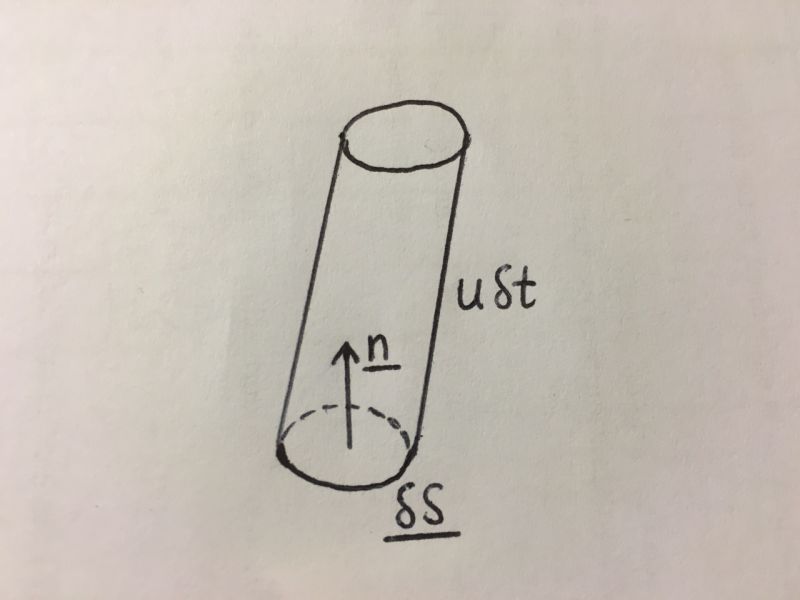 uδt
n
δS